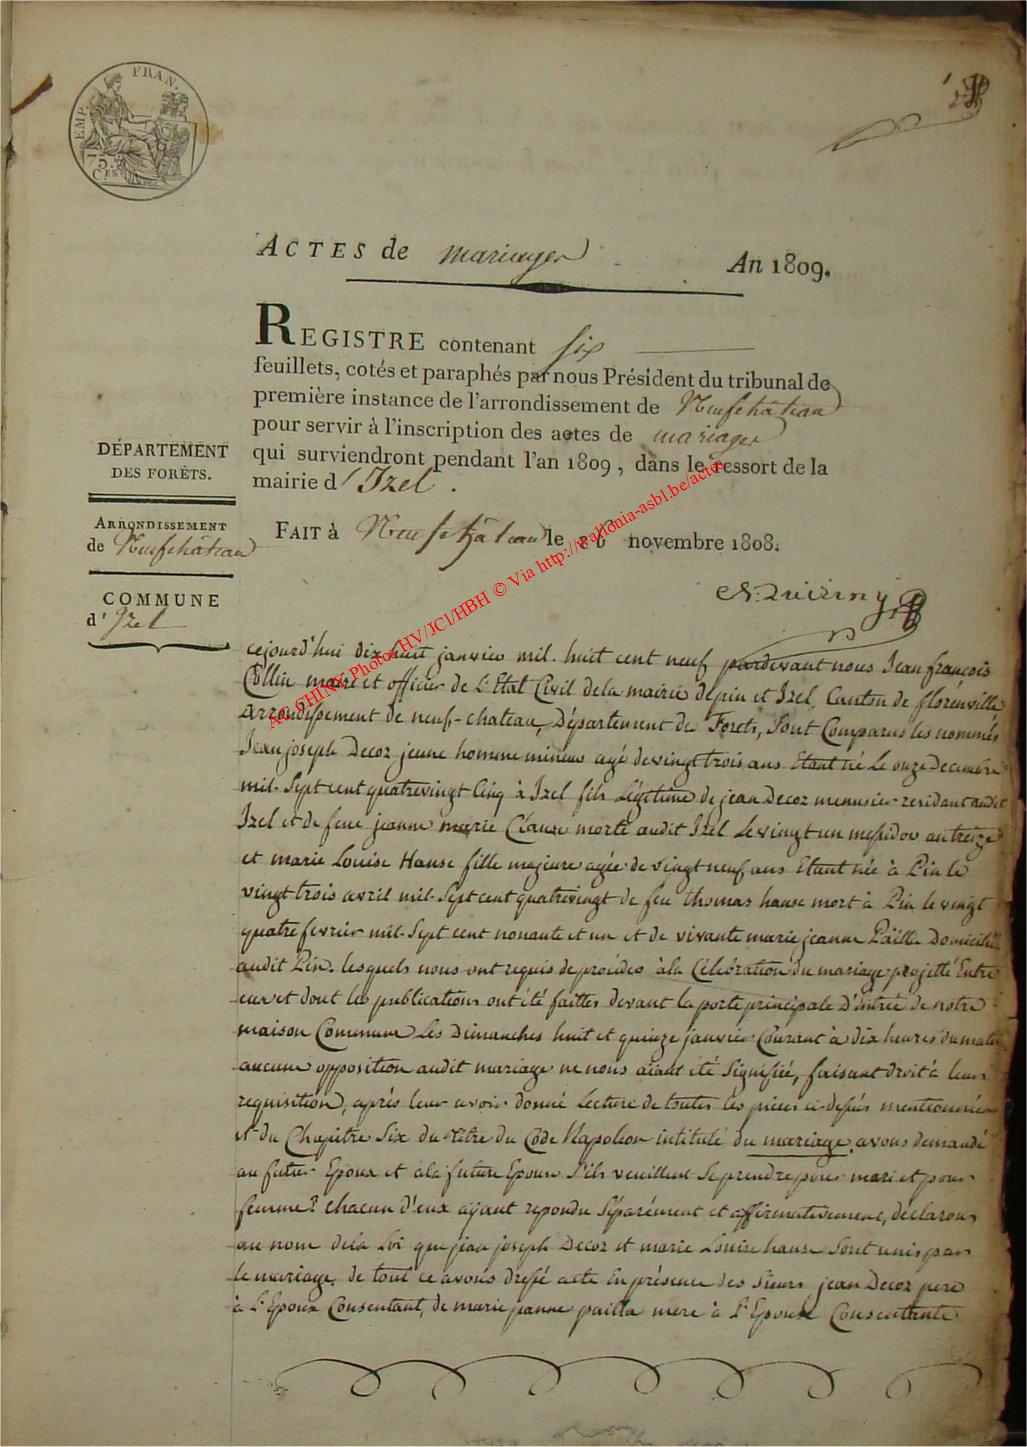 EMP. FRAN.
75.
C.ES
ACTES de mariages An 1809.
REGISTRE contenant six
feuillets, cotés et paraphés par nous Président du tribunal de
première instance de l'arrondissement de Neufchâteau
pour servir à l'inscription des actes de mariages
qui surviendront pendant l'an 1809, dans le ressort de la
mairie d'Izel.
DÉPARTEMENT
DES FORÊTS.
ARRONDISSEMENT
de Neufchâteau
COMMUNE
d'Izel
FAIT à Neufchâteau le novembre 1808.
AC CHINY Photos HV/JCl/HBH © Via http://wallonia-asbl.be/actes
cejourd'hui dix huit janvier mil. huit cent neuf pardevant nous Jean françois
Collin maire et officier de L'Etat Civil dela mairie depin et Izel, Canton de florenville
arrondissement de neuf-chateau, Département de Forets, Sont Comparus les nommés
Jean joseph Decoz jeune homme mineur agé devingt trois ans Etant né Le onze Decembre
mil. Sept cent quatrevingt Cinq à Izel fils Légitime de jean Decoz menusier residant audit
Izel et de feue jeanne marie Clause morte audit Izel Levingt un messidor an treize
et marie Louise Hanse fille majeure agée de vingt neuf ans Etant née à Pin le
vingt trois avril mil. Sept cent quatrevingt de feu thomas hanse mort à Pin le vingt
quatre fevrier mil. Sept cent nonante et un et de vivante marie jeanne Pailla Domiciliée
audit Pin. lesquels nous ont requis de proceder à la Célébration du mariage projetté Entre
eux et dont les publications ont été faittes devant la porte principale D'entrée de notre
maison Commune Les Dimanches huit et quinze janvier Courant à dix heures du matin
aucune opposition audit mariage ne nous aïant été Signifiée, faisant droit à leur
requisition, après leur avoir donné Lecture de toutes les pieces ci-dessus mentionnées
et du Chapitre Six du titre du Code Napoleon intitulé du mariage. avons demandé
au futur Epoux et à la future Epouse S'ils veuillent Se prendre pour mari et pour
femme? chacun d'eux aÿant repondu Séparément et affirmativement, déclarons
au nom dela Loi que jean joseph Decoz et marie Louise hanse Sont unis par
le mariage. de tout ce avons dressé acte En présence des Sieurs jean Decoz pere
à L'Epoux Consentant, de marie jeanne pailla mere à L'Epouse Consentante